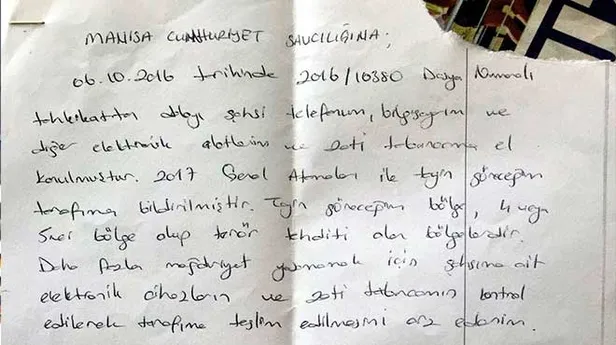 MANİSA CUMHURİYET SAVCILIĞINA;
06.10.2016 tarihinde 2016/10380 Dosya Numaralı
tahkikattan dolayı şahsi telefonum, bilgisayarım ve
diğer elektronik aletlerim ve zati tabancama el
konulmuştur. 2017 Genel Atamaları ile tayin göreceğim
tarafıma bildirilmiştir. Tayin göreceğim bölge, 4 veya
5nci bölge olup terör tehditi olan bölgelerdir.
Daha fazla mağduriyet yaşamamak için şahsıma ait
elektronik cihazların ve zati tabancamın kontrol
edilerek tarafıma teslim edilmesini arz ederim.